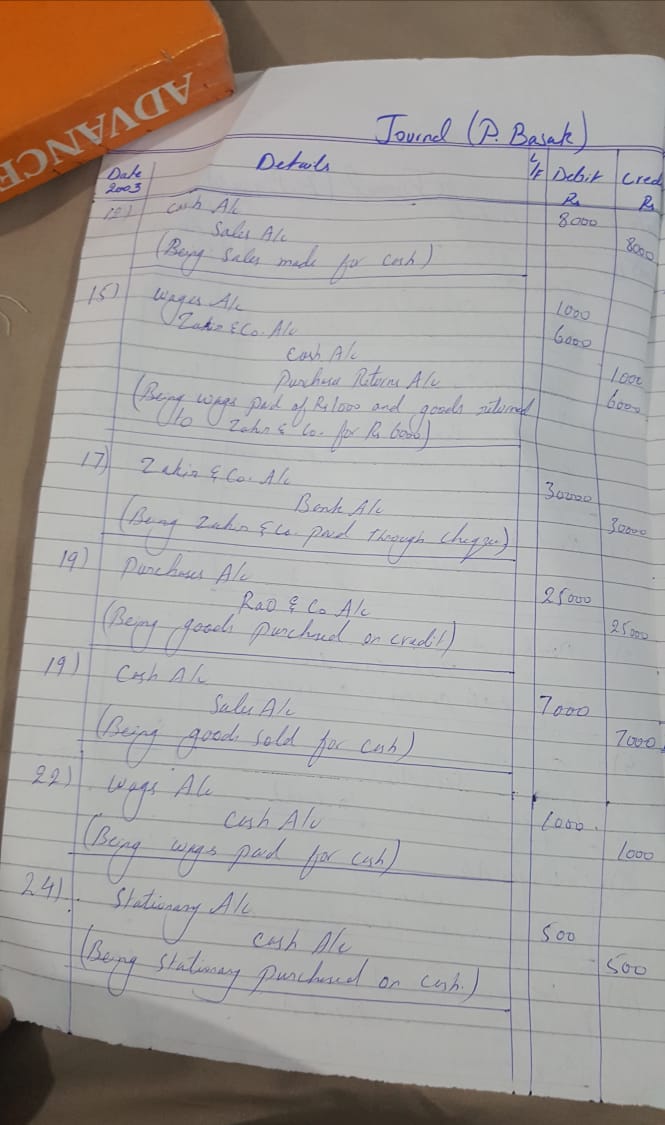 ADVANCE
Journal (P. Basak)
Date 2003 Details L/F Debit Rs Credi Rs
12) Cash A/c 8000
Sales A/c 8000
(Being sales made for cash)
15) Wages A/c 1000
Zakir & Co. A/c 6000
Cash A/c 1000
Purchase Returns A/c 6000
(Being wages paid of Rs 1000 and goods returned
to Zakir & Co. for Rs 6000)
17) Zakir & Co. A/c 30000
Bank A/c 30000
(Being Zakir & Co. paid through cheque)
19) Purchases A/c 25000
Rao & Co A/c 25000
(Being goods purchased on credit)
19) Cash A/c 7000
Sales A/c 7000
(Being goods sold for cash)
22) Wages A/c 1000
Cash A/c 1000
(Being wages paid for cash)
24) Stationary A/c 500
Cash A/c 500
(Being stationary purchased on cash.)